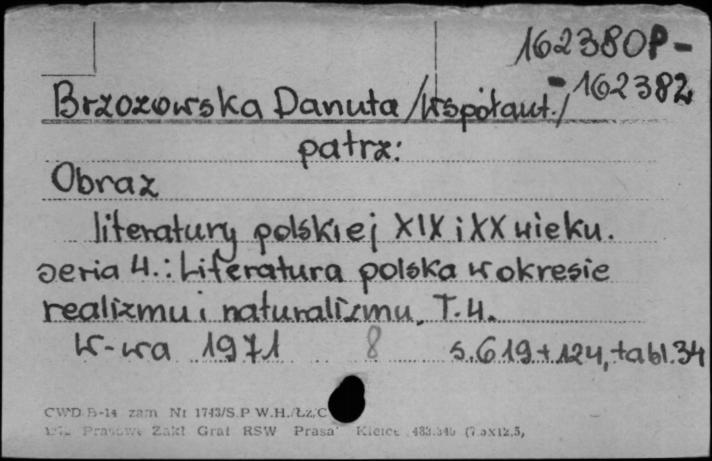 162380P-
-162382
Brzozowska Danuta /Współaut./
patrz:
Obraz
literatury polskiej XIX i XX wieku.
seria 4.: Literatura polska w okresie
realizmu i naturalizmu. T.4.
W-wa 1971 8 s.619+124, tabl.34
CWD B-14 zam Nr 1743/S.P W.H./Łz.C
Prasowe Zakł Graf RSW Prasa Kielce